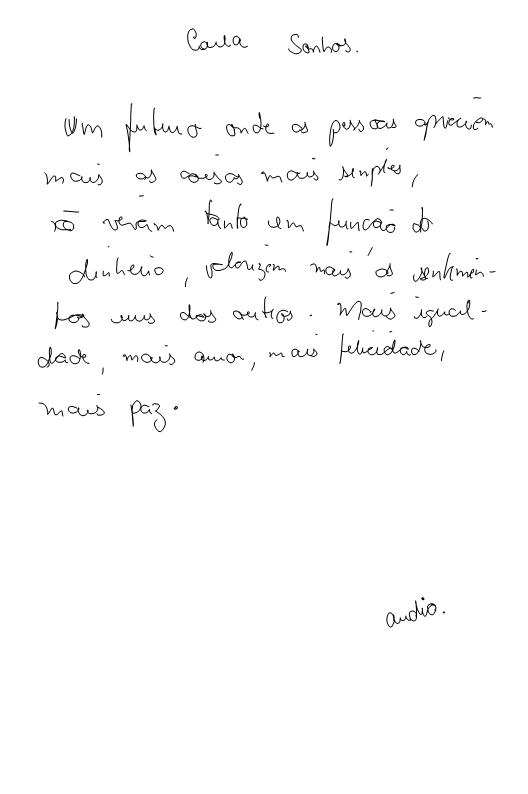 Carta Sonhos.
Um futuro onde as pessoas apreciem
mais as coisas mais simples,
não vivam tanto em função do
dinheiro, valorizem mais os sentimen-
tos uns dos outros. Mais igual-
dade, mais amor, mais felicidade,
mais paz.
audio.